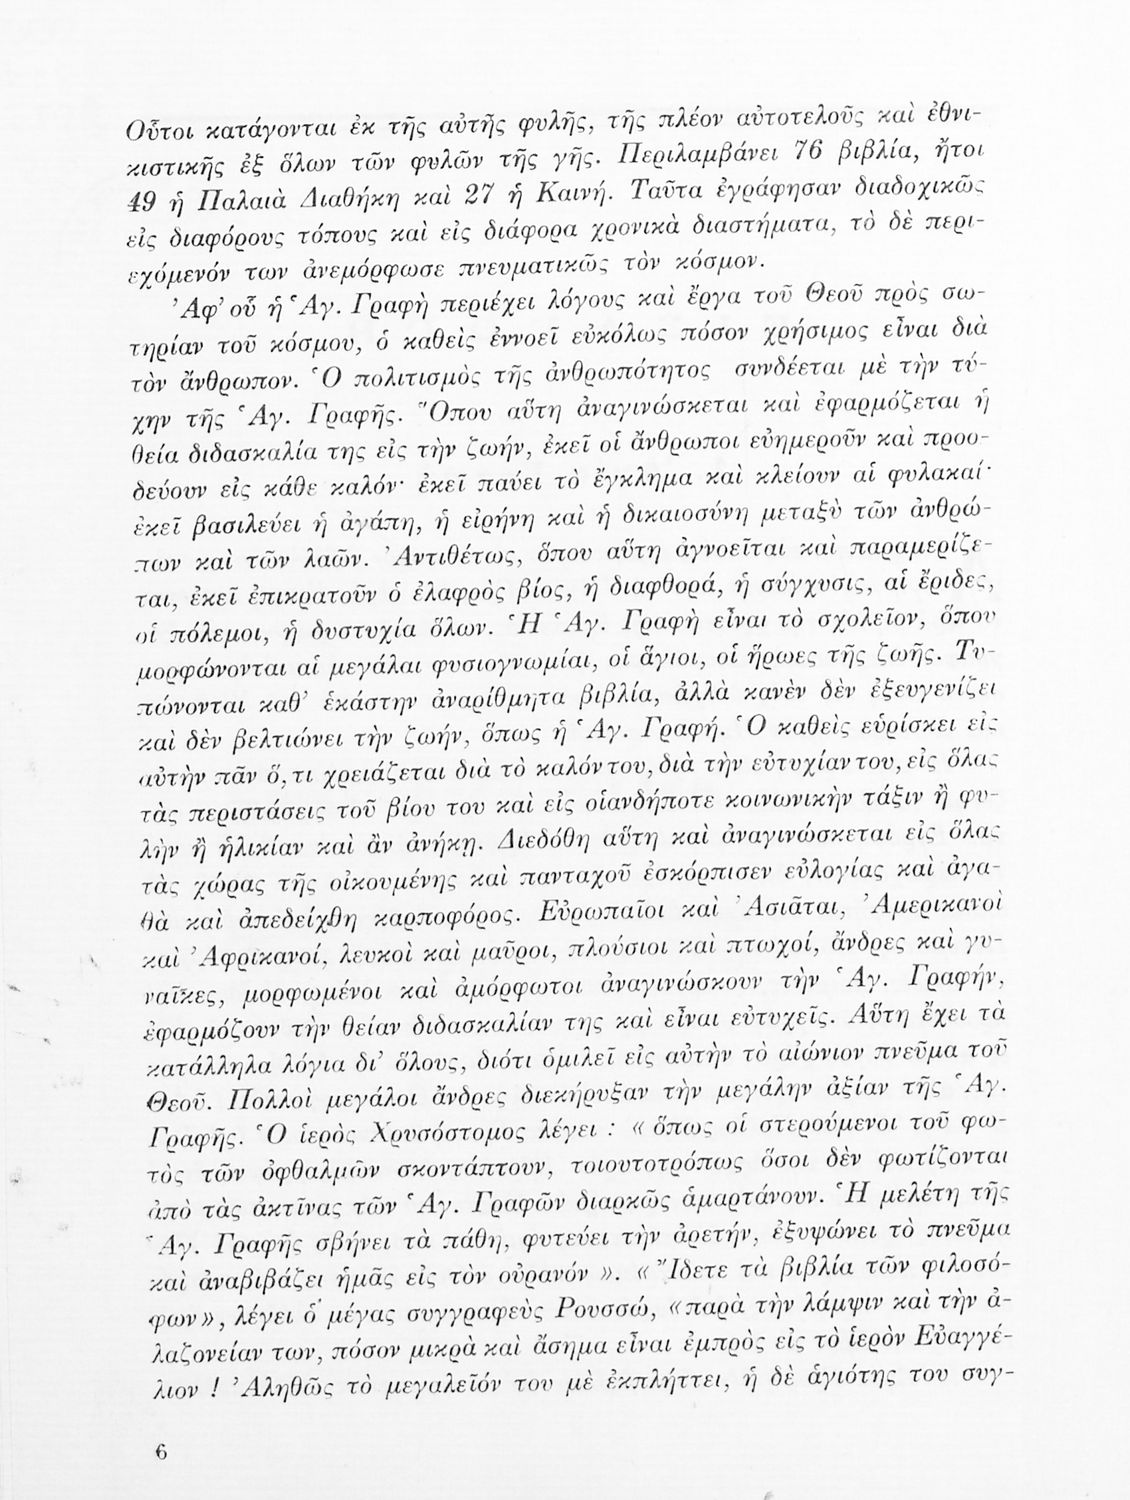 Οὗτοι κατάγονται ἐκ τῆς αὐτῆς φυλῆς, τῆς πλέον αὐτοτελοῦς καὶ ἐθνι-
κιστικῆς ἐξ ὅλων τῶν φυλῶν τῆς γῆς. Περιλαμβάνει 76 βιβλία, ἤτοι
49 ἡ Παλαιὰ Διαθήκη καὶ 27 ἡ Καινή. Ταῦτα ἐγράφησαν διαδοχικῶς
εἰς διαφόρους τόπους καὶ εἰς διάφορα χρονικὰ διαστήματα, τὸ δὲ περι-
εχόμενόν των ἀνεμόρφωσε πνευματικῶς τὸν κόσμον.
Ἀφ' οὗ ἡ Ἁγ. Γραφὴ περιέχει λόγους καὶ ἔργα τοῦ Θεοῦ πρὸς σω-
τηρίαν τοῦ κόσμου, ὁ καθεὶς ἐννοεῖ εὐκόλως πόσον χρήσιμος εἶναι διὰ
τὸν ἄνθρωπον. Ὁ πολιτισμὸς τῆς ἀνθρωπότητος συνδέεται μὲ τὴν τύ-
χην τῆς Ἁγ. Γραφῆς. Ὅπου αὕτη ἀναγινώσκεται καὶ ἐφαρμόζεται ἡ
θεία διδασκαλία της εἰς τὴν ζωήν, ἐκεῖ οἱ ἄνθρωποι εὐημεροῦν καὶ προο-
δεύουν εἰς κάθε καλόν· ἐκεῖ παύει τὸ ἔγκλημα καὶ κλείουν αἱ φυλακαί·
ἐκεῖ βασιλεύει ἡ ἀγάπη, ἡ εἰρήνη καὶ ἡ δικαιοσύνη μεταξὺ τῶν ἀνθρώ-
πων καὶ τῶν λαῶν. Ἀντιθέτως, ὅπου αὕτη ἀγνοεῖται καὶ παραμερίζε-
ται, ἐκεῖ ἐπικρατοῦν ὁ ἐλαφρὸς βίος, ἡ διαφθορά, ἡ σύγχυσις, αἱ ἔριδες,
οἱ πόλεμοι, ἡ δυστυχία ὅλων. Ἡ Ἁγ. Γραφὴ εἶναι τὸ σχολεῖον, ὅπου
μορφώνονται αἱ μεγάλαι φυσιογνωμίαι, οἱ ἅγιοι, οἱ ἥρωες τῆς ζωῆς. Τυ-
πώνονται καθ' ἑκάστην ἀναρίθμητα βιβλία, ἀλλὰ κανὲν δὲν ἐξευγενίζει
καὶ δὲν βελτιώνει τὴν ζωήν, ὅπως ἡ Ἁγ. Γραφή. Ὁ καθεὶς εὑρίσκει εἰς
αὐτὴν πᾶν ὅ,τι χρειάζεται διὰ τὸ καλόν του, διὰ τὴν εὐτυχίαν του, εἰς ὅλας
τὰς περιστάσεις τοῦ βίου του καὶ εἰς οἱανδήποτε κοινωνικὴν τάξιν ἢ φυ-
λὴν ἢ ἡλικίαν καὶ ἂν ἀνήκῃ. Διεδόθη αὕτη καὶ ἀναγινώσκεται εἰς ὅλας
τὰς χώρας τῆς οἰκουμένης καὶ πανταχοῦ ἐσκόρπισεν εὐλογίας καὶ ἀγα-
θὰ καὶ ἀπεδείχθη καρποφόρος. Εὐρωπαῖοι καὶ Ἀσιᾶται, Ἀμερικανοὶ
καὶ Ἀφρικανοί, λευκοὶ καὶ μαῦροι, πλούσιοι καὶ πτωχοί, ἄνδρες καὶ γυ-
ναῖκες, μορφωμένοι καὶ ἀμόρφωτοι ἀναγινώσκουν τὴν Ἁγ. Γραφήν,
ἐφαρμόζουν τὴν θείαν διδασκαλίαν της καὶ εἶναι εὐτυχεῖς. Αὕτη ἔχει τὰ
κατάλληλα λόγια δι' ὅλους, διότι ὁμιλεῖ εἰς αὐτὴν τὸ αἰώνιον πνεῦμα τοῦ
Θεοῦ. Πολλοὶ μεγάλοι ἄνδρες διεκήρυξαν τὴν μεγάλην ἀξίαν τῆς Ἁγ.
Γραφῆς. Ὁ ἱερὸς Χρυσόστομος λέγει : « ὅπως οἱ στερούμενοι τοῦ φω-
τὸς τῶν ὀφθαλμῶν σκοντάπτουν, τοιουτοτρόπως ὅσοι δὲν φωτίζονται
ἀπὸ τὰς ἀκτῖνας τῶν Ἁγ. Γραφῶν διαρκῶς ἁμαρτάνουν. Ἡ μελέτη τῆς
Ἁγ. Γραφῆς σβήνει τὰ πάθη, φυτεύει τὴν ἀρετήν, ἐξυψώνει τὸ πνεῦμα
καὶ ἀναβιβάζει ἡμᾶς εἰς τὸν οὐρανόν ». « Ἴδετε τὰ βιβλία τῶν φιλοσό-
φων», λέγει ὁ μέγας συγγραφεὺς Ρουσσώ, «παρὰ τὴν λάμψιν καὶ τὴν ἀ-
λαζονείαν των, πόσον μικρὰ καὶ ἄσημα εἶναι ἐμπρὸς εἰς τὸ ἱερὸν Εὐαγγέ-
λιον ! Ἀληθῶς τὸ μεγαλεῖόν του μὲ ἐκπλήττει, ἡ δὲ ἁγιότης του συγ-
6